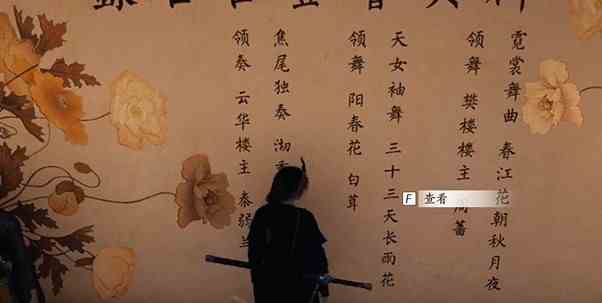 霓裳舞曲 春江花朝秋月夜
领舞 樊楼楼主
天女袖舞 三十三天长雨花
领舞 阳春花 白茸
焦尾独奏
领奏 云华楼主 秦弱兰
F 查看